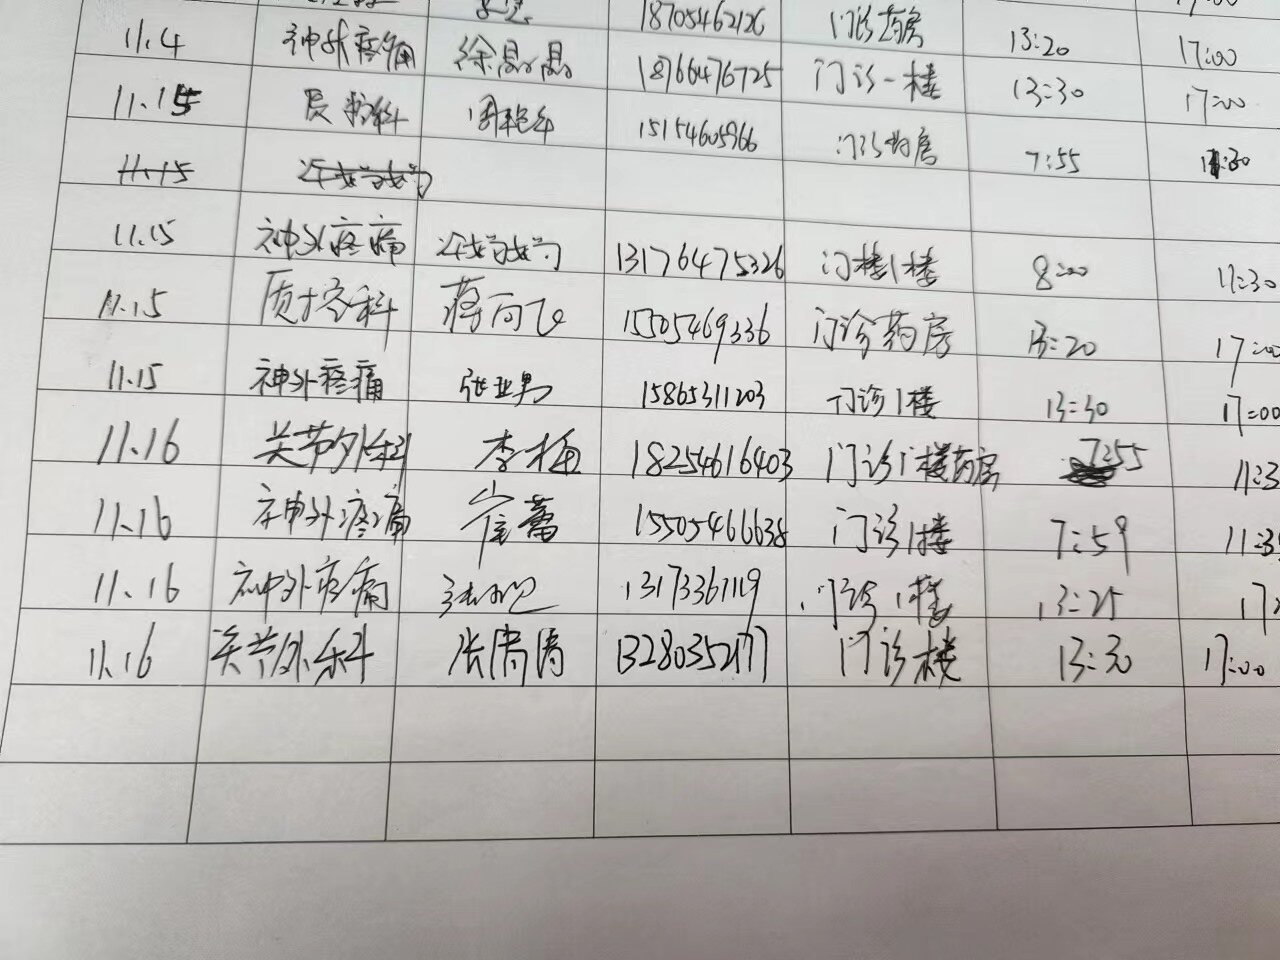 18705462126 门诊药房 17:00
11.4 神外疼痛 徐晶晶 18766476725 门诊一楼 13:20 17:00
11.15 周艳华 15154605966 门诊药房 13:30 17:00
11.15 7:55 11:30
11.15 神外疼痛 13176475326 门楼1楼 8:00 11:30
11.15 质控科 蒋向飞 15505469336 门诊药房 13:20 17:00
11.15 神外疼痛 张亚男 15865311203 门诊1楼 13:30 17:00
11.16 关节外科 李梅 18254616403 门诊1楼药房 7:55 11:3
11.16 神外疼痛 崔蕾 15505466638 门诊1楼 7:59 11:3
11.16 神外疼痛 13173361119 门诊1楼 13:25 17:
11.16 关节外科 张清涛 13280352177 门诊楼 13:30 17:00